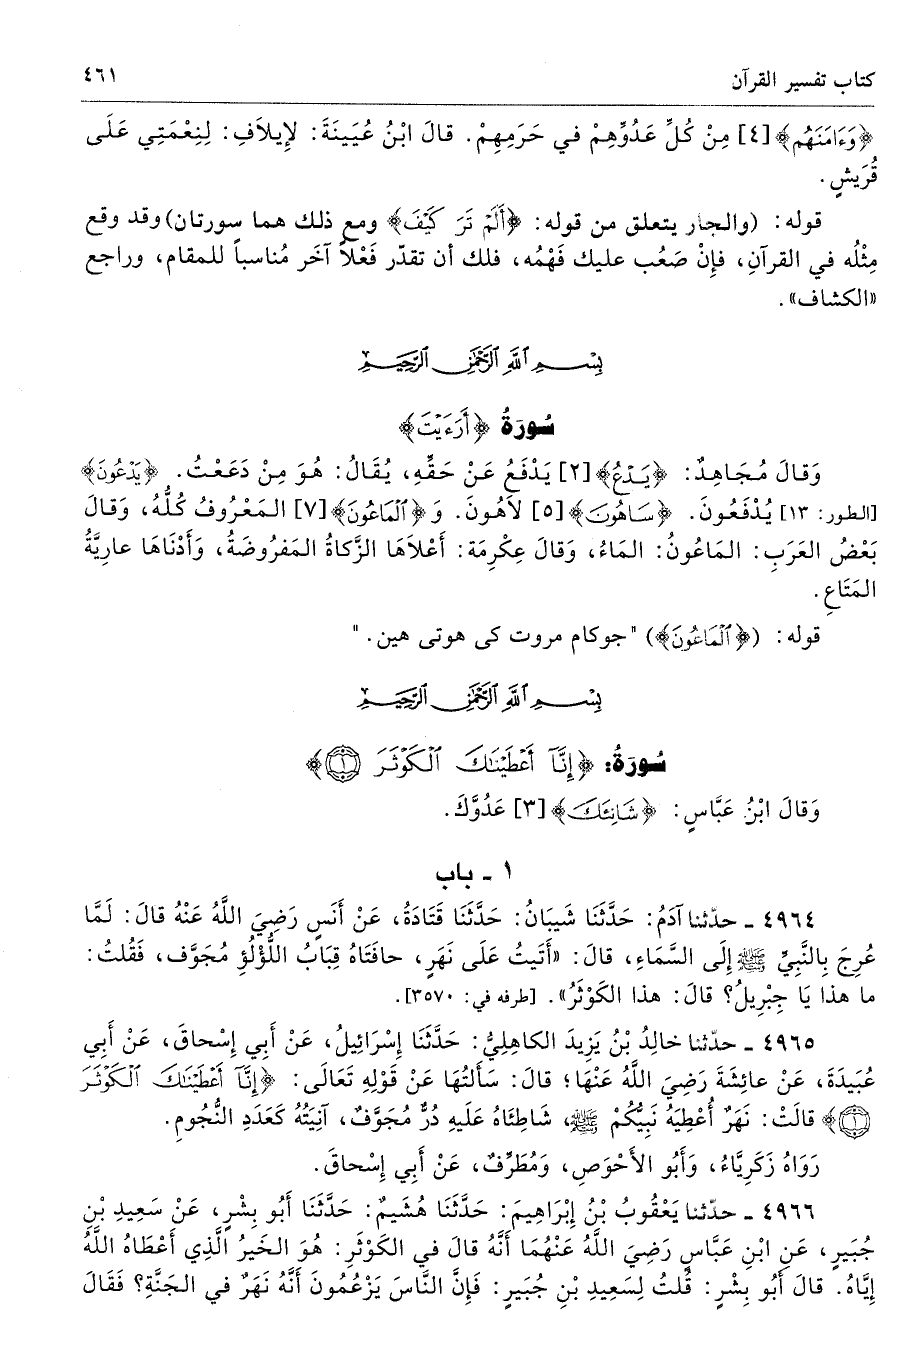 كتاب تفسير القرآن ٤٦١
﴿وَءَامَنَهُم﴾[٤] مِنْ كُلِّ عَدُوِّهِمْ في حَرَمِهِمْ. قالَ ابْنُ عُيَينَةَ: لإِيلاَفِ: لِنِعْمَتِي عَلَى
قُرَيشٍ.
قوله: (والجار يتعلق من قوله: ﴿أَلَمْ تَرَ كَيْفَ﴾ ومع ذلك هما سورتان) وقد وقع
مِثْلُه في القرآنِ، فإنْ صَعُب عليك فَهْمُه، فلك أن تقدّر فَعْلاً آخر مُناسباً للمقام، وراجع
«الكشاف».
بِسْمِ ٱللَّهِ ٱلرَّحْمَٰنِ ٱلرَّحِيمِ
سُورَةُ ﴿أَرَءَيْتَ﴾
وَقالَ مُجَاهِدٌ: ﴿يَدُعُّ﴾[٢] يَدْفَعُ عَنْ حَقِّهِ، يُقَالُ: هُوَ مِنْ دَعَعْتُ. ﴿يَدْعُونَ﴾
[الطور: ١٣] يُدْفَعُونَ. ﴿سَاهُونَ﴾[٥] لاَهُونَ. وَ﴿ٱلْمَاعُونَ﴾[٧] المَعْرُوفُ كُلُّهُ، وَقالَ
بَعْضُ العَرَبِ: المَاعُونُ: المَاءُ، وَقالَ عِكْرِمَة: أَعْلاَهَا الزَّكاةُ المَفرُوضَةُ، وَأَدْنَاهَا عارِيَّةُ
المَتَاعِ.
قوله: (﴿ٱلْمَاعُونَ﴾) "جوكام مروت كى هوتى هين."
بِسْمِ ٱللَّهِ ٱلرَّحْمَٰنِ ٱلرَّحِيمِ
سُورَةُ: ﴿إِنَّآ أَعْطَيْنَٰكَ ٱلْكَوْثَرَ ١﴾
وَقالَ ابْنُ عَبَّاسٍ: ﴿شَانِئَكَ﴾[٣] عَدُوَّكَ.
١ ـ باب
٤٩٦٤ ـ حدّثنا آدَمُ: حَدَّثَنَا شَيبَانُ: حَدَّثَنَا قَتَادَةُ، عَنْ أَنَسٍ رَضِيَ اللَّهُ عَنْهُ قالَ: لَمَّا
عُرِجَ بِالنَّبِيِّ ﷺ إِلَى السَّمَاءِ، قالَ: «أَتَيتُ عَلَى نَهَرٍ، حافَتَاهُ قِبَابُ اللُّؤْلُؤِ مُجَوَّف، فَقُلتُ:
ما هذا يَا جِبْرِيلُ؟ قالَ: هذا الكَوْثَرُ». [طرفه في: ٣٥٧٠].
٤٩٦٥ ـ حدّثنا خالِدُ بْنُ يَزِيدَ الكاهِلِيُّ: حَدَّثَنَا إِسْرَائِيلُ، عَنْ أَبِي إِسْحاقَ، عَنْ أَبِي
عُبَيدَةَ، عَنْ عائِشَةَ رَضِيَ اللَّهُ عَنْهَا؛ قالَ: سَأَلتُهَا عَنْ قَوْلِهِ تَعَالَى: ﴿إِنَّآ أَعْطَيْنَٰكَ ٱلْكَوْثَرَ
١﴾ قالَتْ: نَهَرٌ أُعْطِيَهُ نَبِيُّكُمْ ﷺ، شَاطِئَاهُ عَلَيهِ دُرٌّ مُجَوَّفٌ، آنِيَتُهُ كَعَدَدِ النُّجُومِ.
رَوَاهُ زَكَرِيَّاءُ، وَأَبُو الأَحْوَصِ، وَمُطَرِّفٌ، عَنْ أَبِي إِسْحاقَ.
٤٩٦٦ ـ حدّثنا يَعْقُوبُ بْنُ إِبْرَاهِيمَ: حَدَّثَنَا هُشَيمٌ: حَدَّثَنَا أَبُو بِشْرٍ، عَنْ سَعِيدِ بْنِ
جُبَيرٍ، عَنِ ابْنِ عَبَّاسٍ رَضِيَ اللَّهُ عَنْهُمَا أَنَّهُ قالَ في الكَوْثَرِ: هُوَ الخَيرُ الَّذِي أَعْطَاهُ اللَّهُ
إِيَّاهُ. قالَ أَبُو بِشْرٍ: قُلتُ لِسَعِيدِ بْنِ جُبَيرٍ: فَإِنَّ النَّاسَ يَزْعُمُونَ أَنَّهُ نَهَرٌ في الجَنَّةِ؟ فَقَالَ